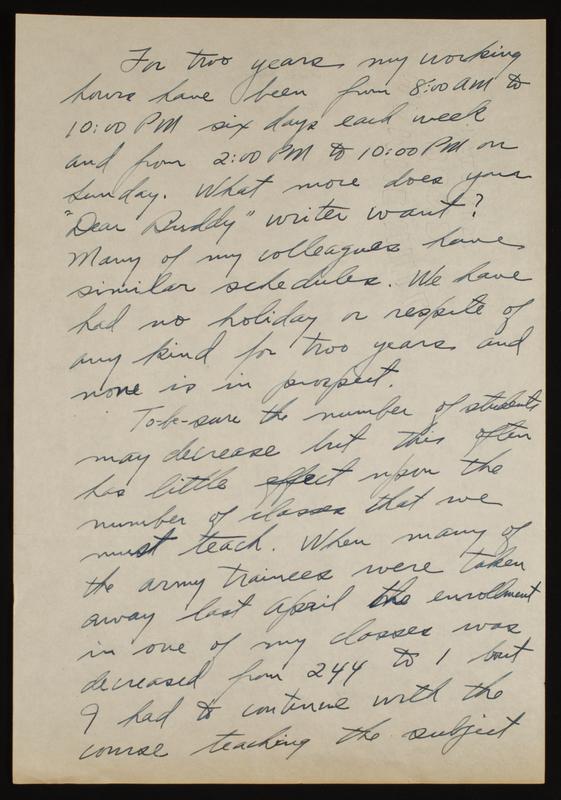 For two years my working
hours have been from 8:00 AM to
10:00 PM six days each week
and from 2:00 PM to 10:00 PM on
Sunday. What more does your
"Dear Buddy" writer want?
Many of my colleagues have
similar schedules. We have
had no holiday or respite of
any kind for two years and
none is in prospect.
To be sure the number of students
may decrease but this often
has little effect upon the
number of classes that we
must teach. When many of
the army trainees were taken
away last April the enrollment
in one of my classes was
decreased from 244 to 1 but
I had to continue with the
course teaching the subject